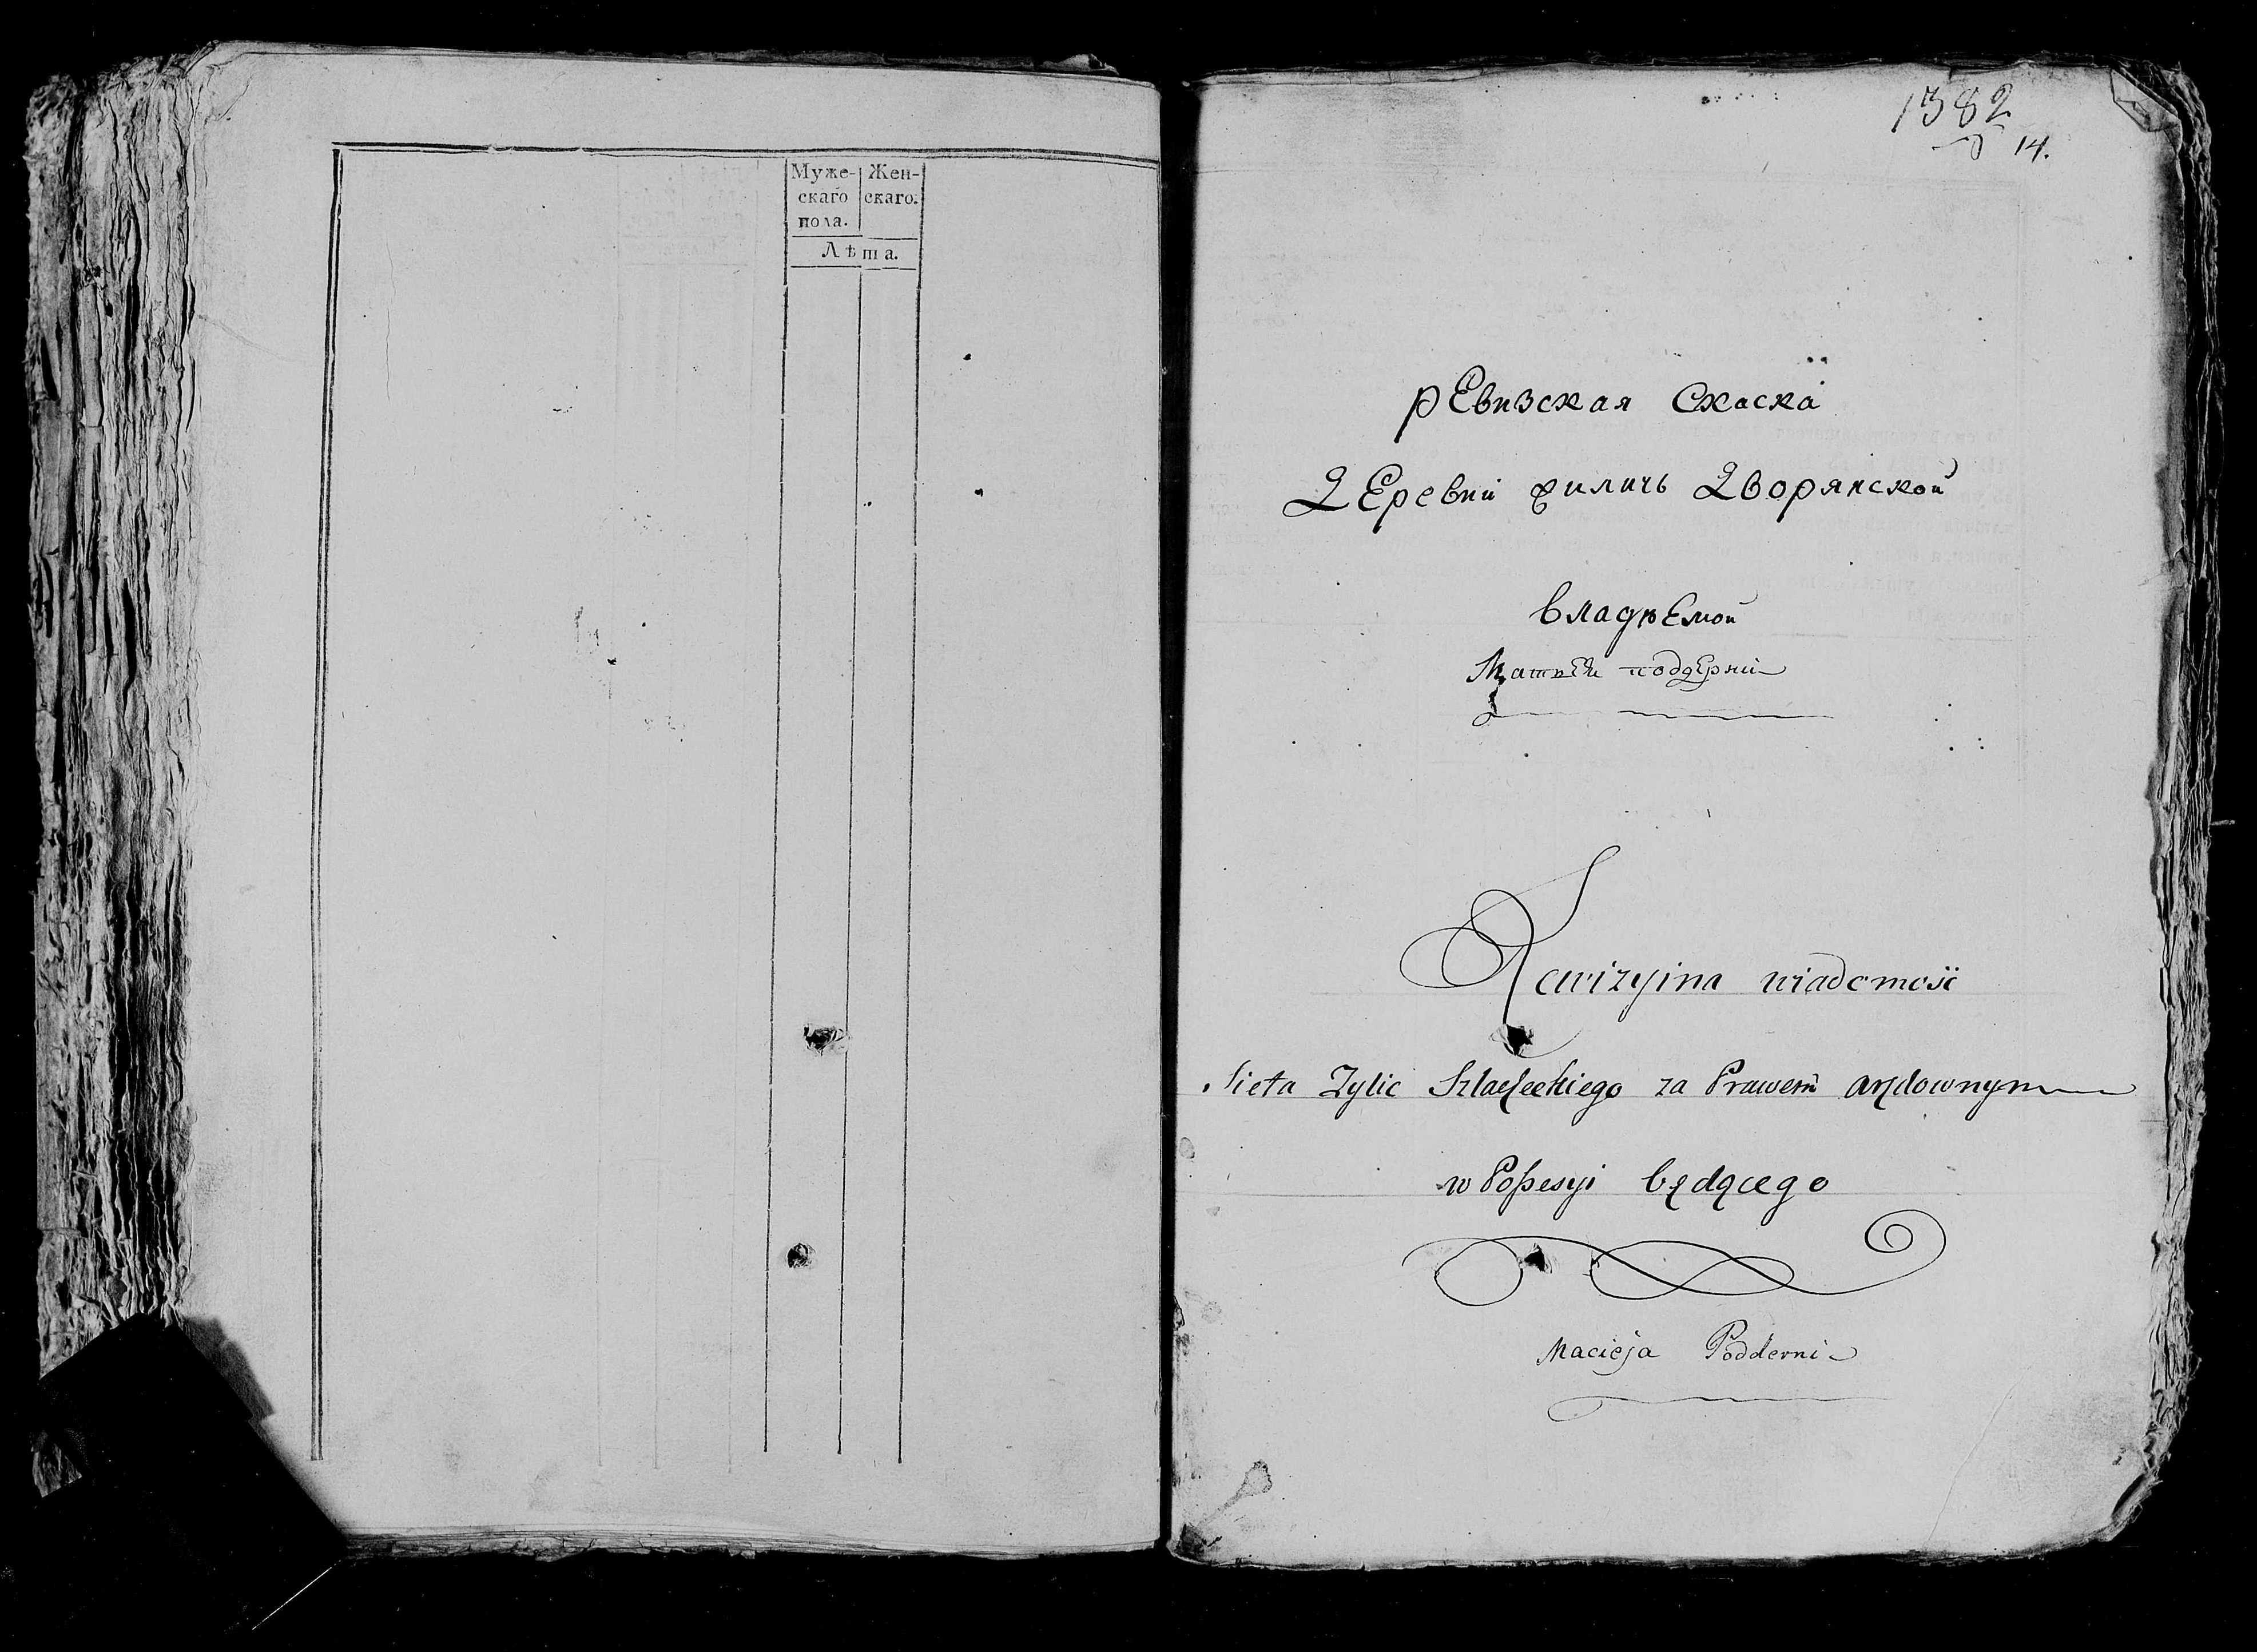 Муже-
скаго
пола.
Жен-
скаго.
Лѣта.
1382
14.
рЕвизская Скаска
ДЕревни Жиличь Дворянской
владѣЕмой
Матвѣй поддЕрни
Rewizyina wiadomość
Sieła Zylic Szlacheckiego za Prawem arędownym
w Possesyi będącego
Macieja Podderni